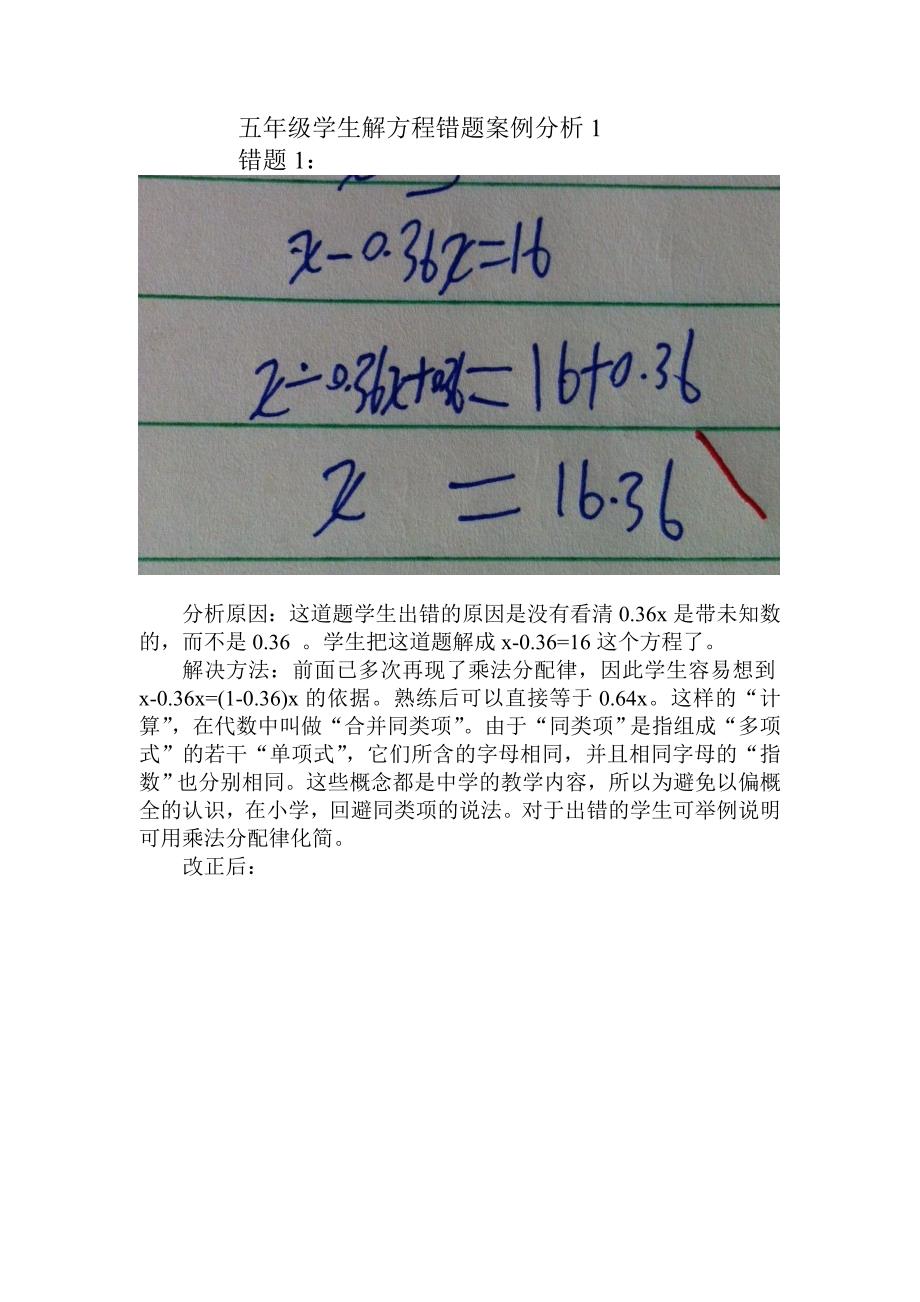 五年级学生解方程错题案例分析 1
错题 1：
x-0.36x=16
x-0.36x+0.36=16+0.36
x = 16.36
分析原因：这道题学生出错的原因是没有看清 0.36x 是带未知数
的，而不是 0.36 。学生把这道题解成 x-0.36=16 这个方程了。
解决方法：前面已多次再现了乘法分配律，因此学生容易想到
x-0.36x=(1-0.36)x 的依据。熟练后可以直接等于 0.64x。这样的“计
算”，在代数中叫做“合并同类项”。由于“同类项”是指组成“多项
式”的若干“单项式”，它们所含的字母相同，并且相同字母的“指
数”也分别相同。这些概念都是中学的教学内容，所以为避免以偏概
全的认识，在小学，回避同类项的说法。对于出错的学生可举例说明
可用乘法分配律化简。
改正后：